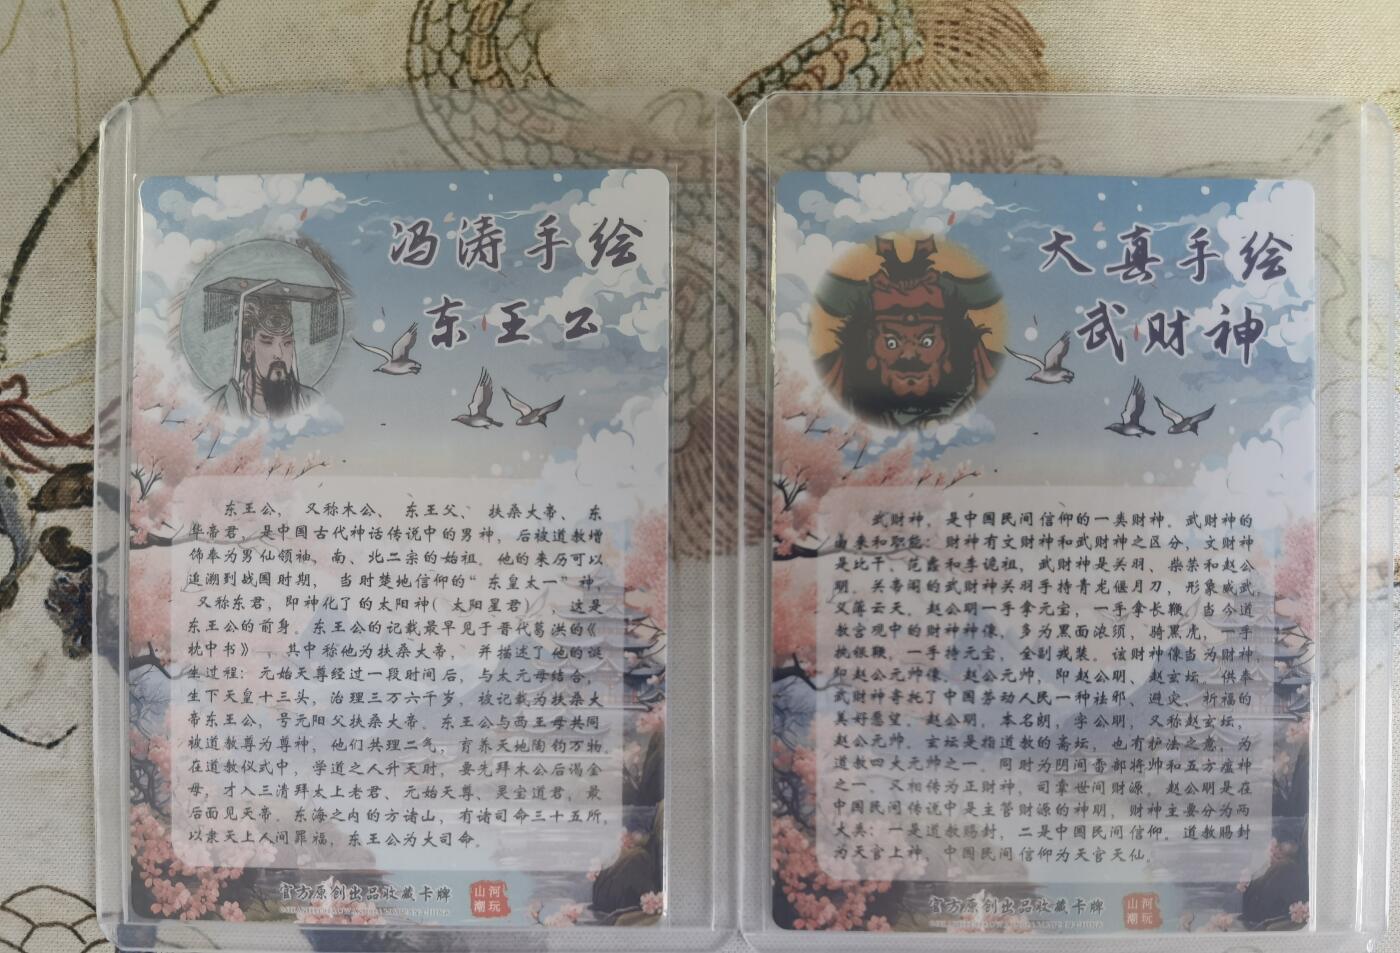 冯涛手绘
东王公
东王公， 又称木公、 东王父、 扶桑大帝、 东
华帝君，是中国古代神话传说中的男神，后被道教增
饰奉为男仙领袖，南、北二宗的始祖。他的来历可以
追溯到战国时期， 当时楚地信仰的“东皇太一”神，
又称东君，即神化了的太阳神（ 太阳星君），这是
东王公的前身。东王公的记载最早见于晋代葛洪的《
枕中书》，其中称他为扶桑大帝， 并描述了他的诞
生过程：元始天尊经过一段时间后，与太元母结合，
生下天皇十三头，治理三万六千岁，被记载为扶桑大
帝东王公，号元阳父扶桑大帝。东王公与西王母共同
被道教尊为尊神，他们共理二气，育养天地陶钧万物。
在道教仪式中，学道之人升天时，要先拜木公后谒金
母，才入三清拜太上老君、元始天尊、灵宝道君，最
后面见天帝。东海之内的方诸山，有诸司命三十五所，
以隶天上人间罪福，东王公为大司命。
官方原创出品收藏卡牌
山河
潮玩
大真手绘
武财神
武财神，是中国民间信仰的一类财神。武财神的
由来和职能：财神有文财神和武财神之区分，文财神
是比干、范蠡和李诡祖，武财神是关羽、柴荣和赵公
明。关帝阁的武财神关羽手持青龙偃月刀，形象威武，
义薄云天。赵公明一手拿元宝，一手拿长鞭。当今道
教宫观中的财神神像，多为黑面浓须，骑黑虎，一手
执银鞭，一手持元宝，全副戎装。该财神像当为财神，
即赵公元帅像。赵公元帅，即赵公明、赵玄坛。供奉
武财神寄托了中国劳动人民一种祛邪、避灾、祈福的
美好愿望。赵公明，本名朗，字公明，又称赵玄坛，
赵公元帅。玄坛是指道教的斋坛，也有护法之意，为
道教四大元帅之一。同时为阴间雷部将帅和五方瘟神
之一。又相传为正财神，司掌世间财源。赵公明是在
中国民间传说中是主管财源的神明，财神主要分为两
大类：一是道教赐封，二是中国民间信仰。道教赐封
为天官上神，中国民间信仰为天官天仙。
官方原创出品收藏卡牌
山河
潮玩